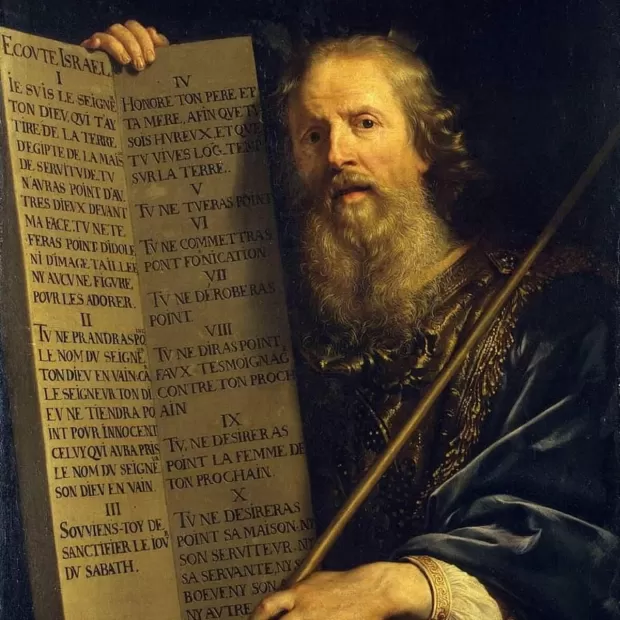 ECOVTE ISRAEL.
I
IE SVIS LE SEIGNE
TON DIEV, QVI T'AY
TIRE DE LA TERRE
D'EGIPTE DE LA MAIS
DE SERVITVDE. TV
N'AVRAS POINT D'AV
TRES DIEVX DEVANT
MA FACE. TV NE TE
FERAS POINT D'IDOLE
NI D'IMAGE TAILLEE
NY AVCVNE FIGVRE
POVR LES ADORER.
II
TV NE PRANDRAS PO
LE NOM DV SEIGNE
TON DIEV EN VAIN. CA
LE SEIGNEVR TON DI
EV NE TIENDRA PO
INT POVR INNOCENT
CELVY QVI AVRA PRIS
LE NOM DV SEIGNE
SON DIEV EN VAIN.
III
SOVVIENS-TOY DE
SANCTIFIER LE IOV
DV SABATH.
IV
HONORE TON PERE ET
TA MERE, AFIN QVE TV
SOIS HVREVX, ET QVE
TV VIVES LOG-TEMP
SVR LA TERRE.
V
TV NE TVERAS POINT
VI
TV NE COMMETTRAS
POINT FONICATION
VII
TV NE DEROBERAS
POINT.
VIII
TV NE DIRAS POINT
FAVX TESMOIGNAG
CONTRE TON PROCH
AIN
IX
TV, NE DESIRERAS
POINT LA FEMME DE
TON PROCHAIN.
X
TV NE DESIRERAS
POINT SA MAISON, NY
SON SERVITEVR, NY
SA SERVANTE, NY S
BOEVF, NY SON A
NY AVTRE